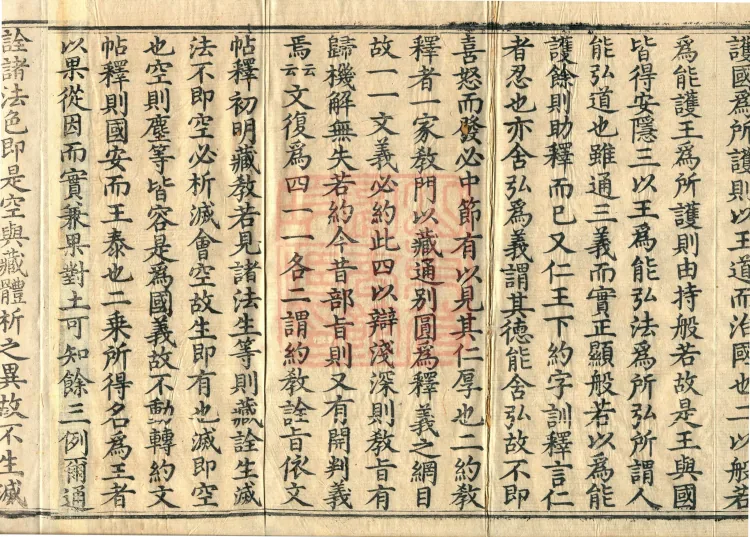 護國為所護則以王道而治國也二以般若
為能護王為所護則由持般若故是王與國
皆得安隱三以王為能弘法為所弘所謂人
能弘道也雖通三義而實正顯般若以為能
護餘則助釋而已又仁王下約字訓釋言仁
者忍也亦舍弘為義謂其德能舍弘故不即
喜怒而發必中節有以見其仁厚也二約教
釋者一家教門以藏通別圓為釋義之網目
故一一文義必約此四以辯淺深則教旨有
歸機解無失若約今昔部旨則又有開判義
焉云云文復為四一一各二謂約教詮旨依文
帖釋初明藏教若見諸法生等則藏詮生滅
法不即空必析滅會空故生即有也滅即空
也空則塵等皆容是為國義故不動轉約文
帖釋則國安而王泰也二乘所得名為王者
以果從因而實兼果對土可知餘三例爾通
詮諸法色即是空與藏體析之異故不生滅